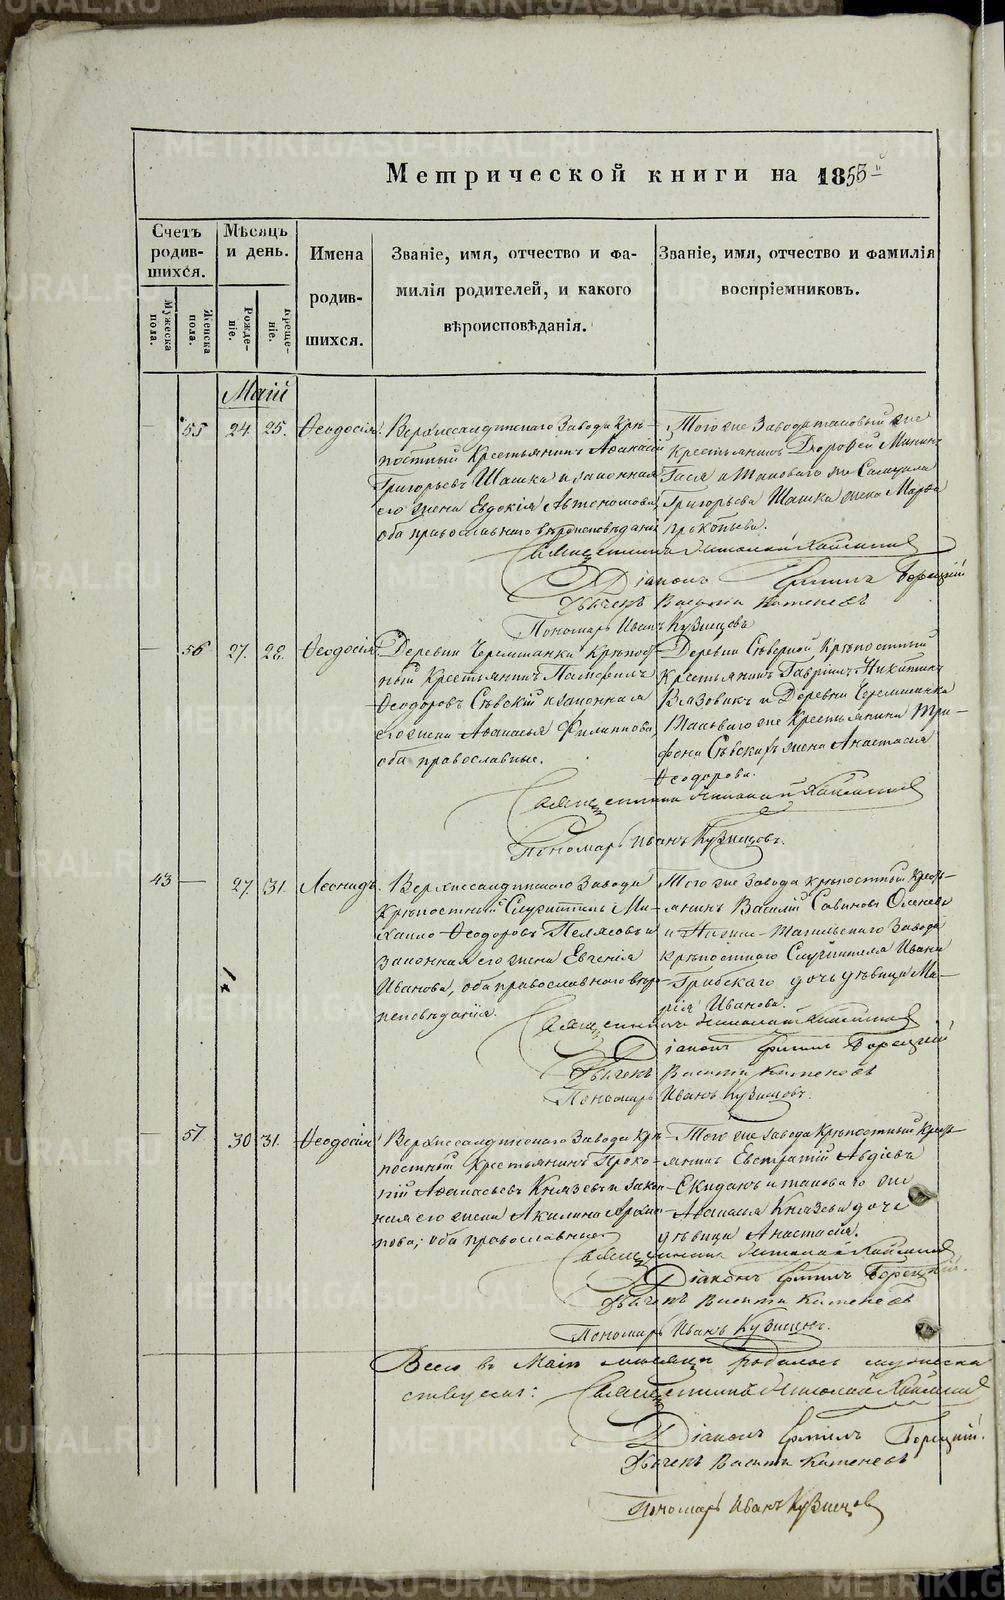 Метрической книги на 1853
Счетъ родившихся.
Мѣсяцъ и день.
Имена родившихся.
Званіе, имя, отчество и фамилія родителей, и какого вѣроисповѣданія.
Званіе, имя, отчество и фамилія воспріемниковъ.
Мужеска пола.
Женска пола.
Рожденіе.
Крещеніе.
Маій
55 24. 25. Ѳеодосія.
Верхнесалдинскаго Завода Крѣ-
постный Крестьянинъ Аѳанасій
Григорьевъ Шашка и законная
его жена Евдокія Автономова,
оба православнаго вѣроисповѣданія
Того же Завода таковый же
Крестьянинъ Дороѳей Мининъ
и таковаго же Самуила
Григорьева Шашка жена Марѳа
Прокопьева.
Священникъ Николай
Діаконъ Борецкій
Дьячекъ Василій Каменевъ
Пономарь Иванъ Кузнецовъ
56 27. 28. Ѳеодосія.
Деревни Черемшанки Крѣпост-
ный Крестьянинъ
Ѳеодоровъ Сѣвскій и законная
его жена Аѳанасья Филиппова
оба православные.
Деревни Сѣверной Крѣпостный
Крестьянинъ Гавріилъ Никитинъ
Вязовикъ и Деревни Черемшанки
таковаго же Крестьянина Три-
фона Сѣвскихъ жена Анастасія
Ѳеодорова.
Священникъ Николай
Пономарь Иванъ Кузнецовъ.
43 — 27. 31. Леонидъ.
Верхнесалдинскаго Завода
Крѣпостный Служитель Ми-
хаило Ѳеодоровъ Пелясовъ и
законная его жена Евгенія
Иванова, оба православнаго вѣро-
исповѣданія.
Того же Завода крѣпостный крес-
янинъ Василій Савиновъ
и Нижне-Тагильскаго Завода
крѣпостнаго Служителя Ивана
Грибскаго дочь дѣвица Ма-
рія Иванова.
Священникъ Николай
Діаконъ Борецкій
Дьячекъ Василій Каменевъ
Пономарь Иванъ Кузнецовъ.
57 30 31. Ѳеодосія
Верхнесалдинскаго Завода Крѣ-
постный Крестьянинъ Проко-
пій Аѳанасьевъ Князевъ и закон-
ная его жена Акилина Архип-
пова; оба православные
Того же Завода Крѣпостный Крест-
янинъ Евстратій Авдіевъ
и таковаго же
Аѳанасія Князева дочь
дѣвица Анастасія.
Священникъ Николай
Діаконъ Борецкій.
Дьячекъ Василій Каменевъ
Пономарь Иванъ Кузнецовъ.
Всего въ Маіи мѣсяцѣ родилось мужеска
Священникъ Николай
Діаконъ Борецкій.
Дьячекъ Василій Каменевъ
Пономарь Иванъ Кузнецовъ
METRIKI.GASU-URAL.RU